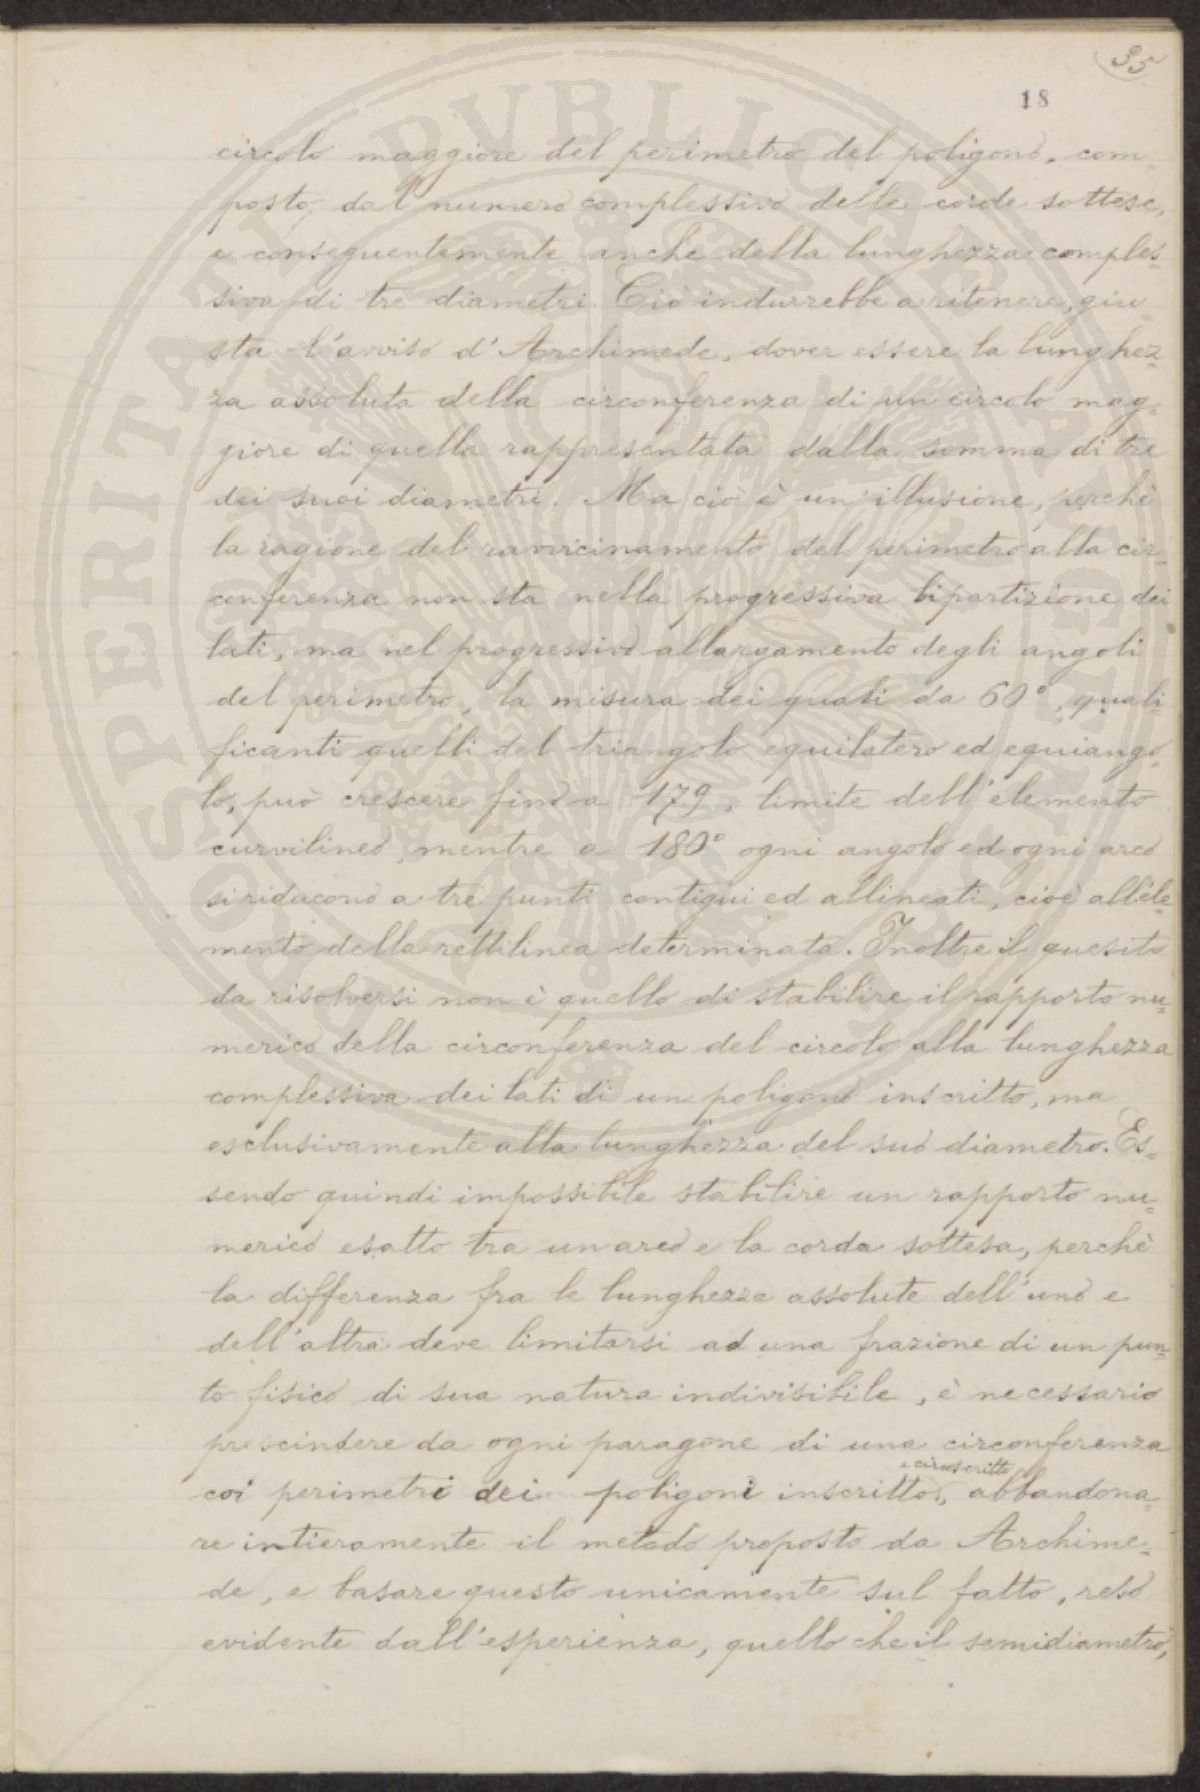 35
18
circolo maggiore del perimetro del poligono, com-
posto, dal numero complessivo delle corde sottese,
e conseguentemente anche della lunghezza comples=
siva di tre diametri. Ciò indurrebbe a ritenere, giu-
sta l'avviso d'Archimede, dover essere la lunghez=
za assoluta della circonferenza di un circolo mag-
giore di quella rappresentata dalla somma di tre
dei suoi diametri. Ma ciò è un'illusione, perchè
la ragione del ravvicinamento del perimetro alla cir=
conferenza non sta nella progressiva bipartizione dei
lati, ma nel progressivo allargamento degli angoli
del perimetro, la misura dei quali da 60°, quali=
ficanti quelli del triangolo equilatero ed equiango=
lo, può crescere fino a 179, limite dell'elemento
curvilineo, mentre a 180° ogni angolo ed ogni arco
si riducono a tre punti contigui ed allineati, cioè all'ele=
mento della rettilinea determinata. Inoltre il quesito
da risolversi non è quello di stabilire il rapporto nu=
merico della circonferenza del circolo alla lunghezza
complessiva dei lati di un poligono inscritto, ma
esclusivamente alla lunghezza del suo diametro. Es=
sendo quindi impossibile stabilire un rapporto nu=
merico esatto tra un arco e la corda sottesa, perchè
la differenza fra le lunghezze assolute dell'uno e
dell'altra deve limitarsi ad una frazione di un pun=
to fisico di sua natura indivisibile, è necessario
prescindere da ogni paragone di una circonferenza
e circoscritto
coi perimetri dei poligoni inscritto, abbandona=
re intieramente il metodo proposto da Archime=
de, e basare questo unicamente sul fatto, reso
evidente dall'esperienza, quello che il semidiametro,
SOSPERITATI PVBLICAE